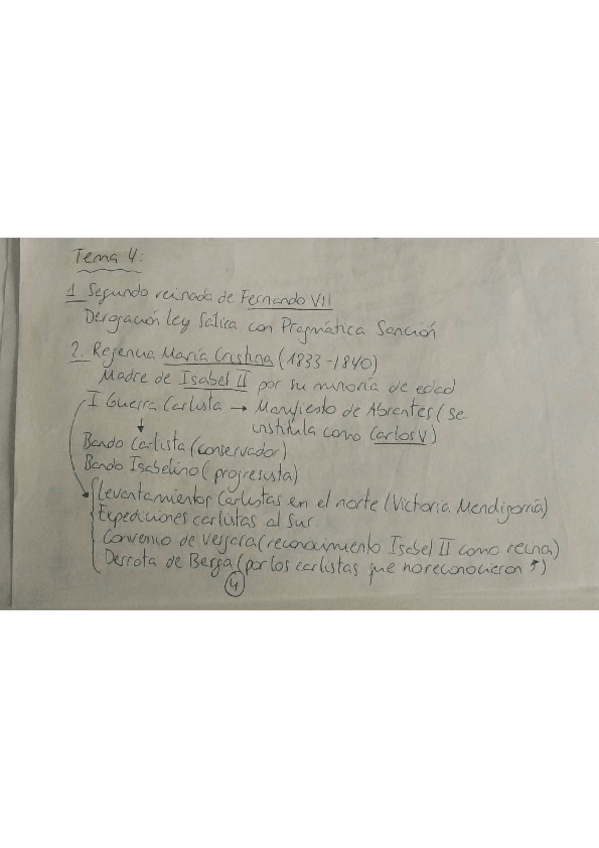 Tema 4:
1 Segundo reinado de Fernando VII
Derogación ley Sálica con Pragmática Sanción
2. Regencia María Cristina (1833-1840)
Madre de Isabel II por su minoría de edad
I Guerra Carlista → Manifiesto de Abrantes (se
institula como Carlos V)
↓
Bando Carlista (conservador)
Bando Isabelino (progresista)
Levantamientos Carlistas en el norte (Victoria Mendigorría)
Expediciones carlistas al sur.
Convenio de Vergara (reconocimiento Isabel II como reina)
Derrota de Berga (por los carlistas que no reconocieron ↑)
4